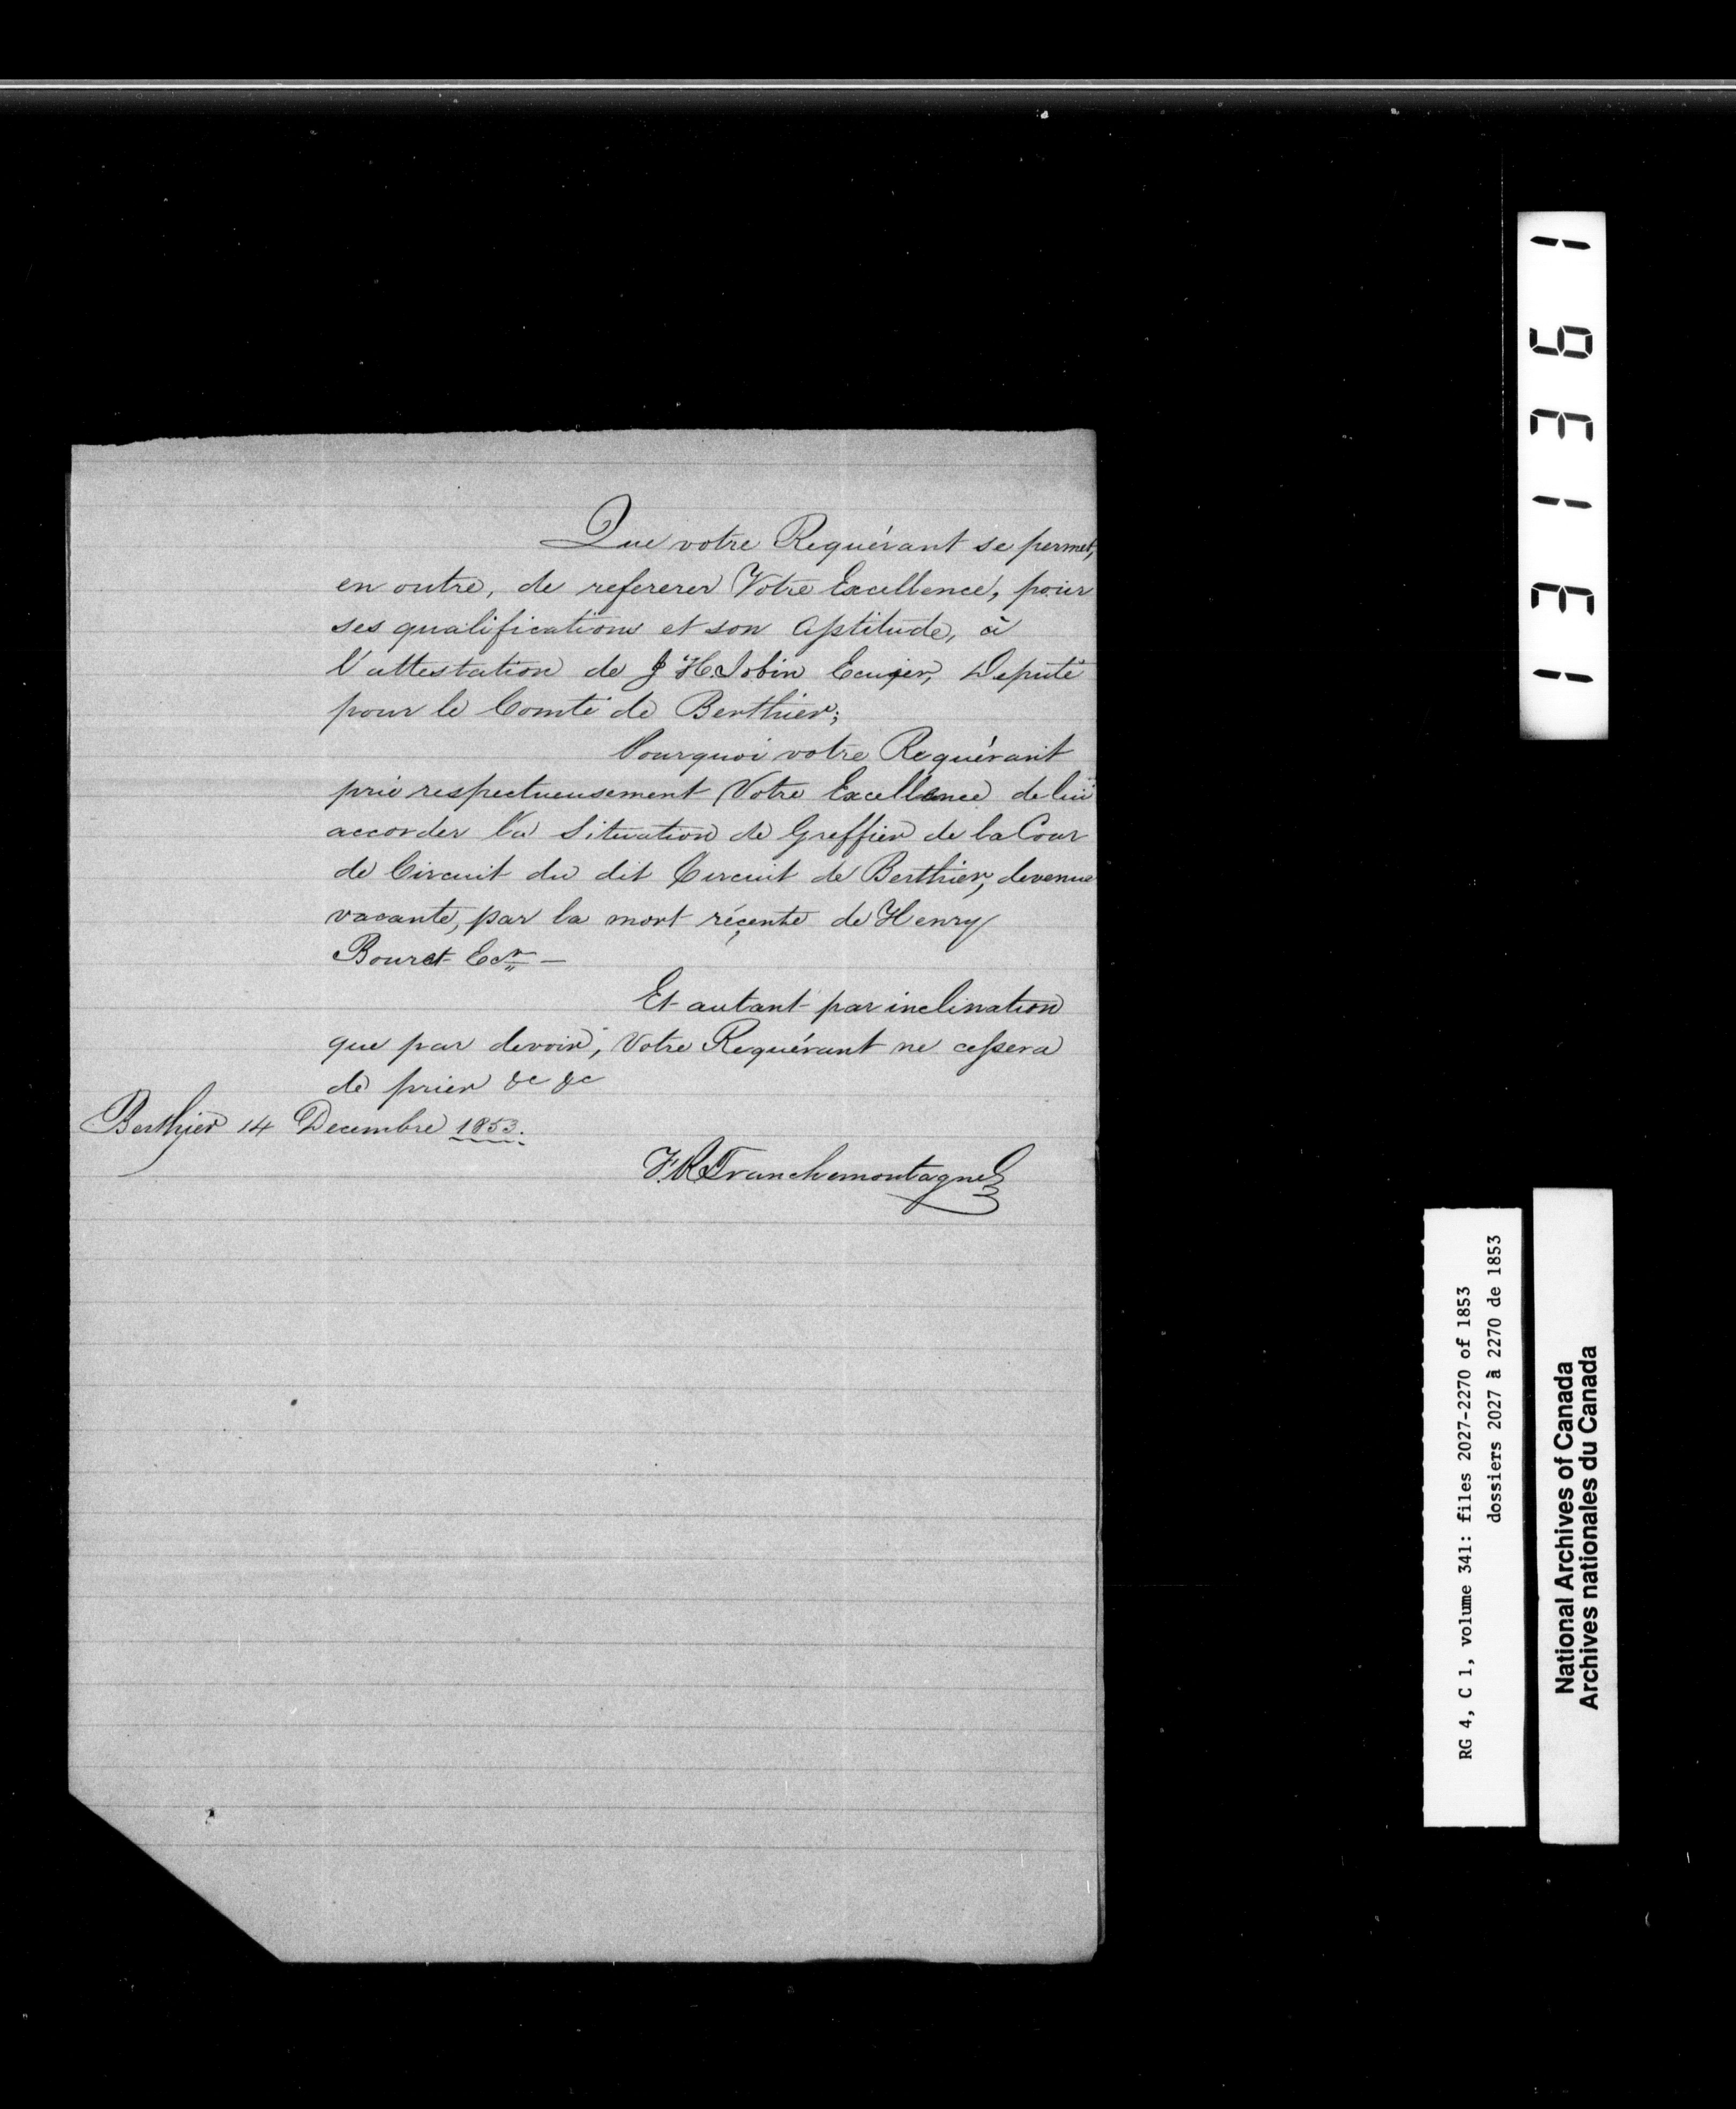 Que votre Requérant se permet,
en outre, de referer Votre Excellence, pour
ses qualifications et son aptitude, à
l'attestation de J H. Jobin Ecuyer, Deputé
pour le Comté de Berthier;
Pourquoi votre Requérant
prie respectueusement Votre Excellence de lui
accorder la Situation de Greffier de la Cour
de Circuit du dit Circuit de Berthier, devenue
vacante, par la mort réçente de Henry
Bouret Ecr —
Et autant par inclination
que par devoir, Votre Requérant ne cessera
de prier &c &c
Berthier 14 Decembre 1853.
Tranchemontagne
131361
RG 4, C 1, volume 341: files 2027-2270 of 1853
dossiers 2027 à 2270 de 1853
National Archives of Canada
Archives nationales du Canada